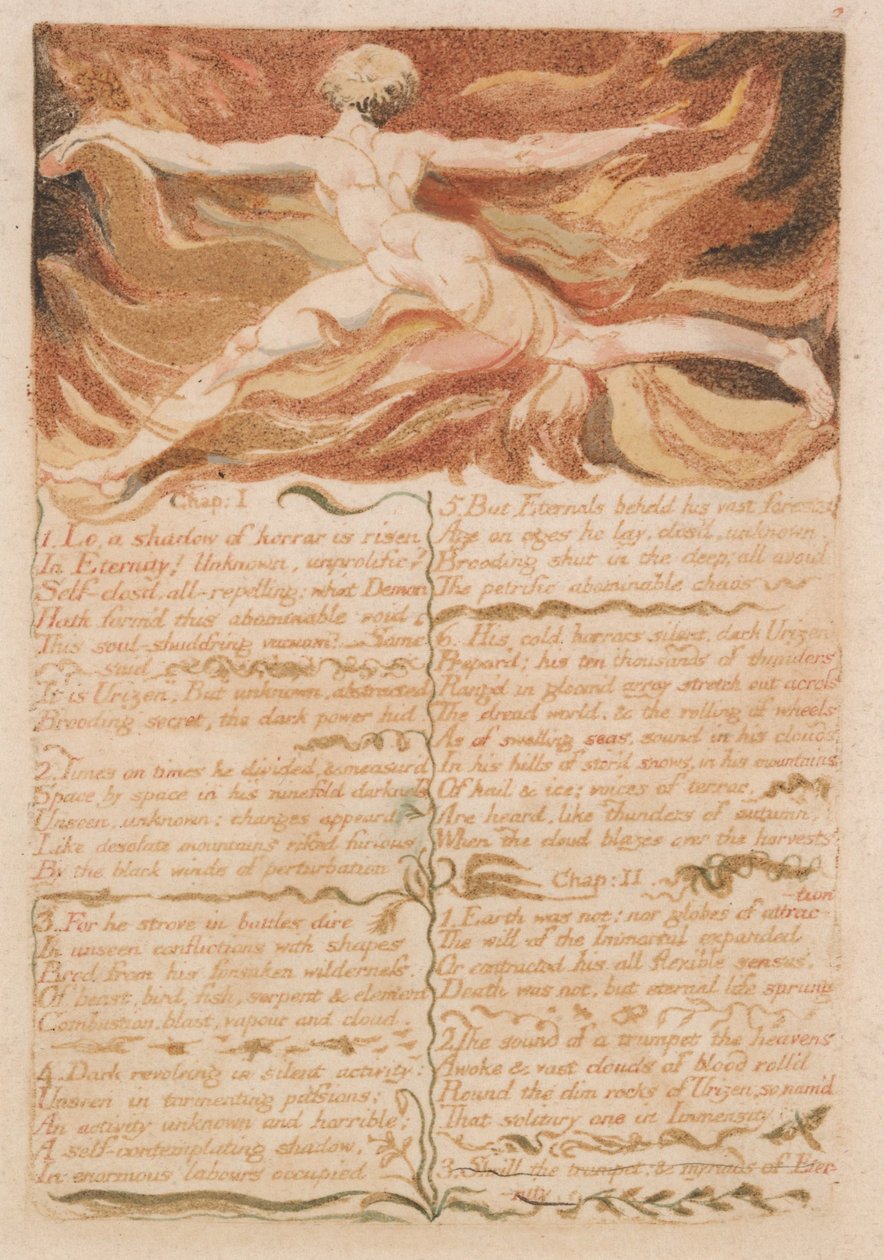 Chap: I
1. Lo, a shadow of horror is risen
In Eternity! Unknown, unprolific?
Self-closd, all-repelling: what Demon
Hath form'd this abominable void
This soul-shudd'ring vacuum?—Some
said
It is Urizen, But unknown, abstracted
Brooding secret, the dark power hid.
2. Times on times he divided, & measur'd
Space by space in his ninefold darkness
Unseen, unknown: changes appeard
Like desolate mountains rifted furious
By the black winds of perturbation
3. For he strove in battles dire
In unseen conflictions with shapes
Bred from his forsaken wilderness,
Of beast, bird, fish, serpent & element
Combustion, blast, vapour and cloud.
4. Dark revolving in silent activity:
Unseen in tormenting passions;
An activity unknown and horrible;
A self-contemplating shadow,
In enormous labours occupied
5. But Eternals beheld his vast forests
Age on ages he lay, clos'd, unknown
Brooding shut in the deep; all avoid
The petrific abominable chaos
6. His cold horrors silent, dark Urizen
Prepar'd: his ten thousands of thunders
Rang'd in gloom'd array stretch out across
The dread world, & the rolling of wheels
As of swelling seas, sound in his clouds
In his hills of stor'd snows, in his mountains
Of hail & ice; voices of terror,
Are heard, like thunders of autumn,
When the cloud blazes over the harvests
Chap: II
tion
1. Earth was not: nor globes of attrac-
The will of the Immortal expanded
Or contracted his all flexible senses.
Death was not, but eternal life sprung
2. The sound of a trumpet the heavens
Awoke & vast clouds of blood roll'd
Round the dim rocks of Urizen, so nam'd
That solitary one in Immensity
3. Shrill the trumpet: & myriads of Eter-
nity